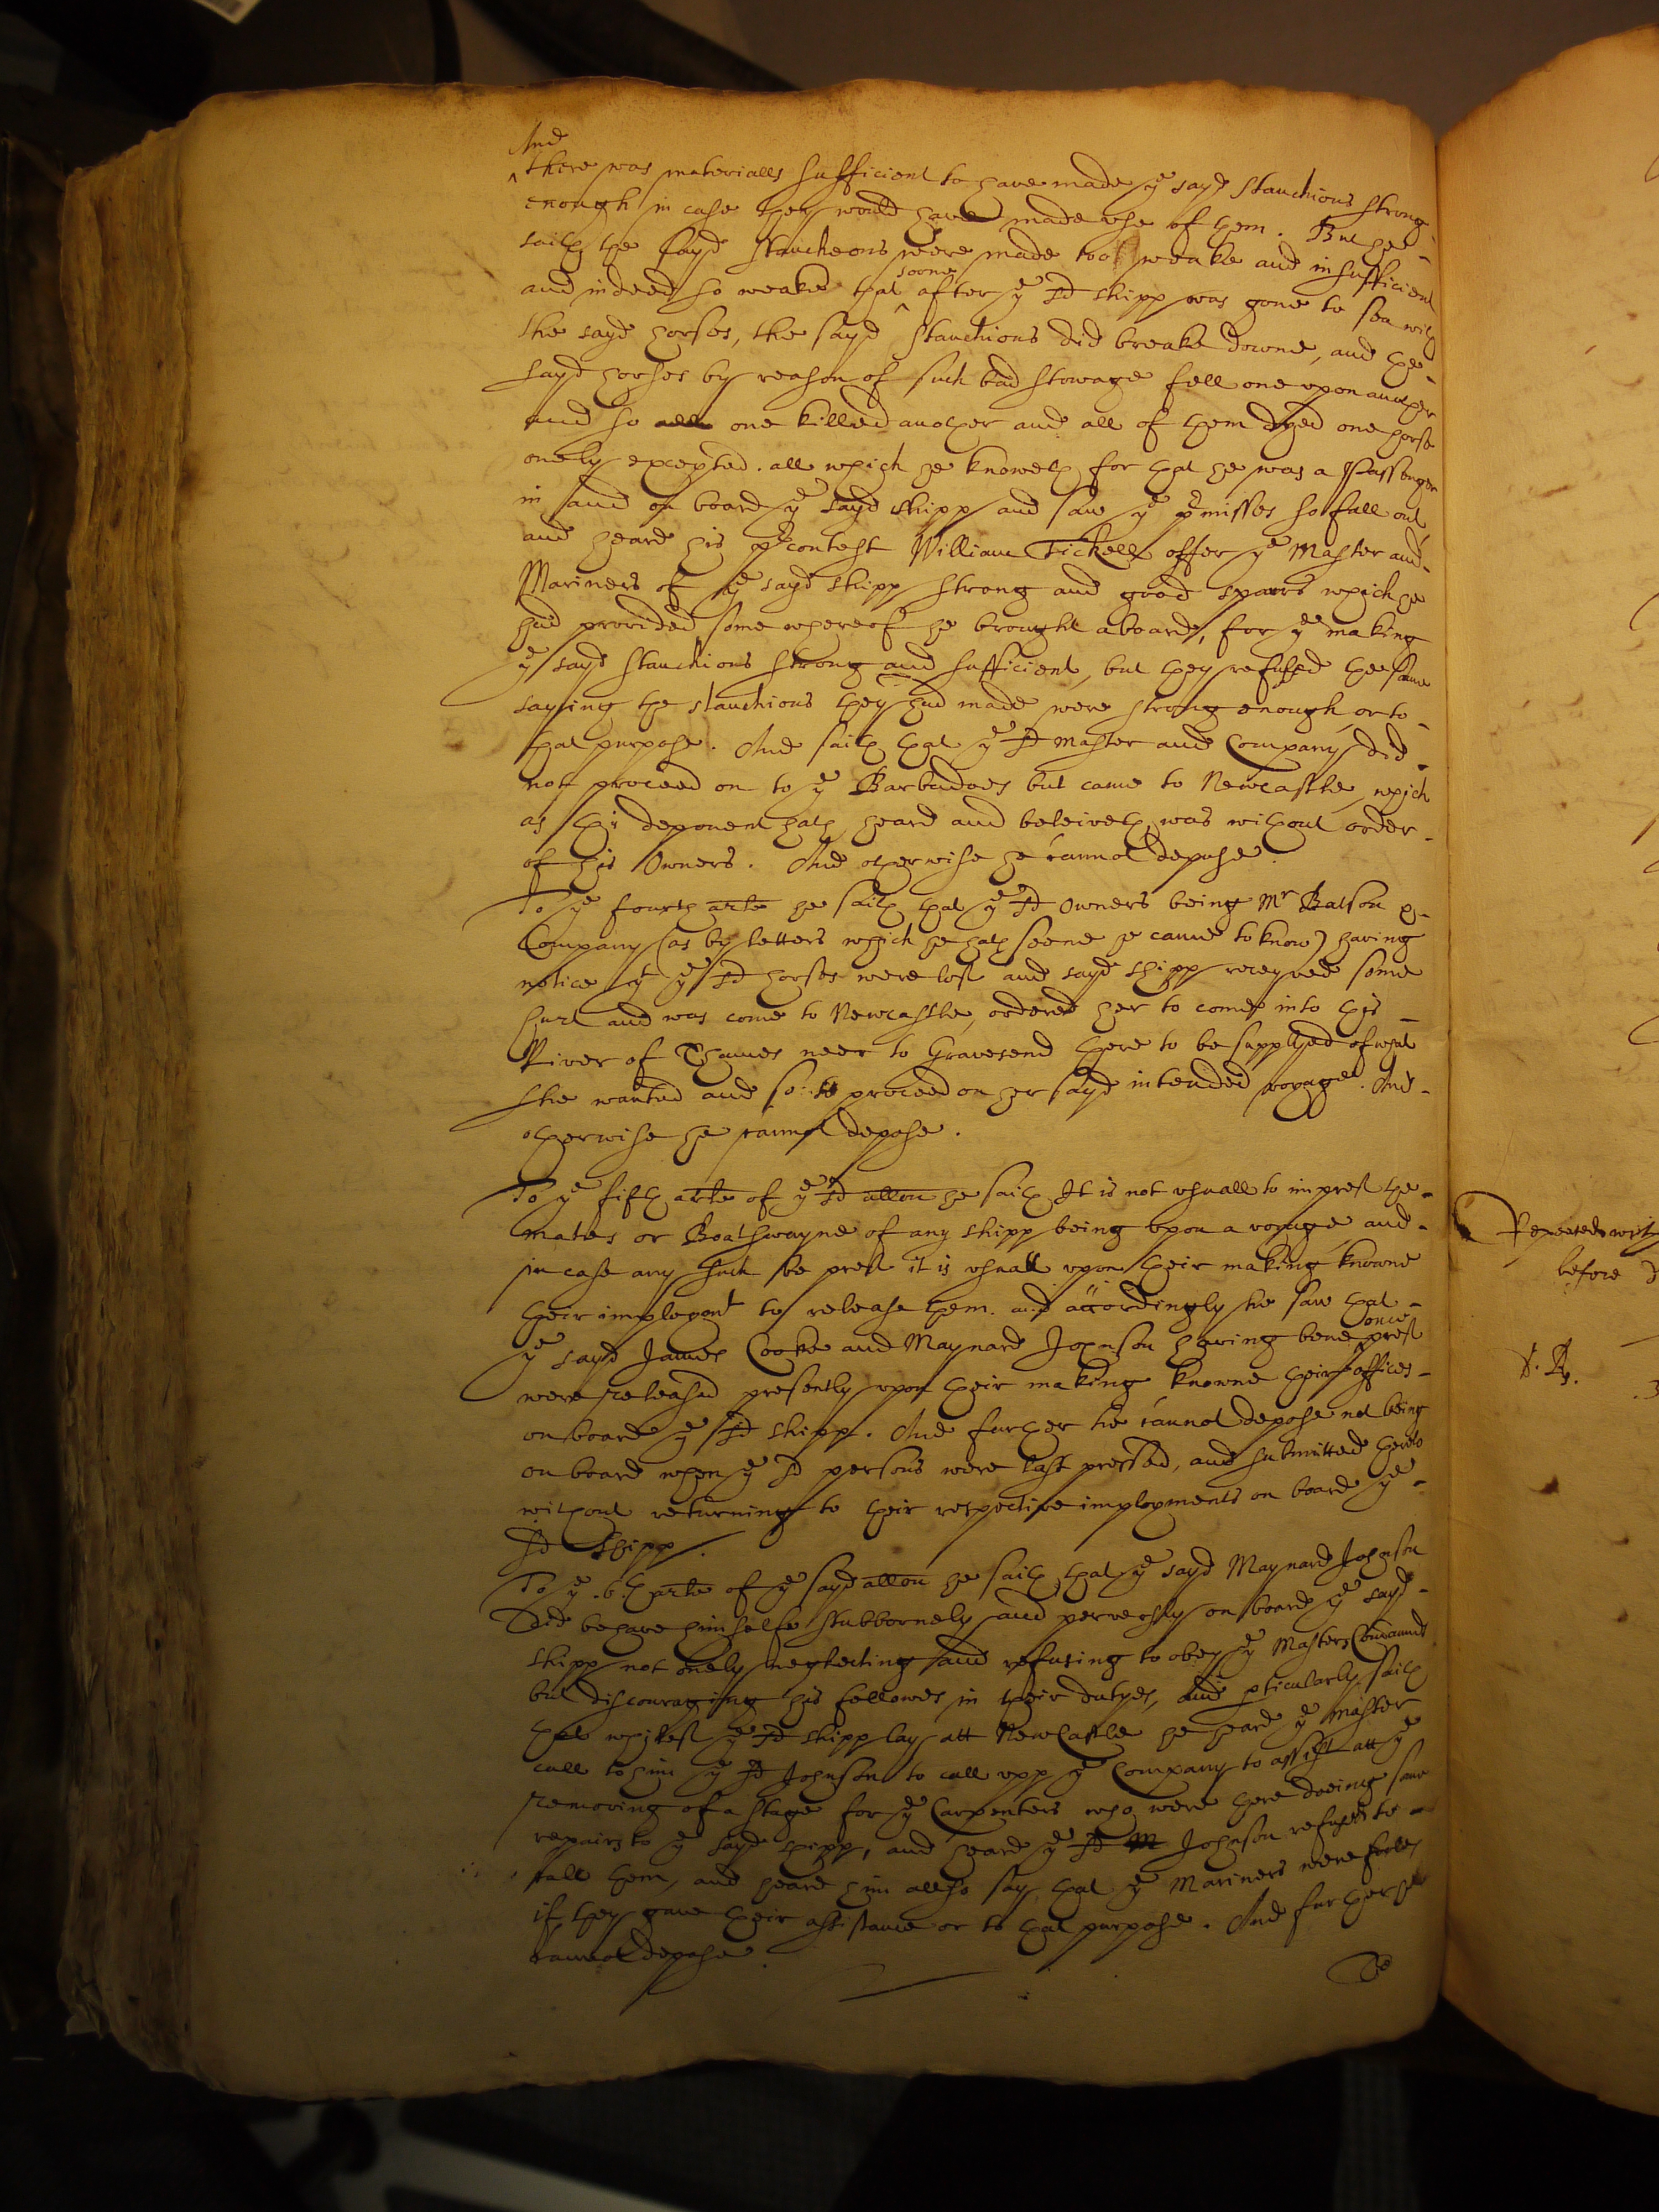 And
^there was materialls sufficient to have made ye sayd stanchions strong
enough in case they would have made use of them. But hee
saith the sayd stancheons were made too weake and insufficient
and indeed so weake that ^soone after ye sd shipp was gone to sea with
the sayd horses, the sayd stanchions did breake downe, and the
sayd horses by reason of such bad stowage fell one upon another
and so one killed another and all of them dyed one horse
onely excepted. all which he knoweth for that he was a Passenger
in and on board ye sayd shipp and saw ye premisses so fall out
and heard his contest William Tickell offer ye Master and
Mariners of ye sayd shipp strong and good sparrs which he
had provided some whereof he brought aboard, for ye making
ye sayd stanchions strong and sufficient, but they refused the same
saying the stanchions they had made were strong enough, or to
that purpose. And saith that ye sd master and Company did
not proceed on to ye Barbadoes but came to Newcastle, which
as this deponent hath heard and beleiveth was without order
of his Owners. And otherwise he cannot depose.
To ye fourth arle he saith that ye sd Owners being Mr Batson &
Company (as by letters which he hath seene he came to know) having
notice yt ye sd horses were lost and sayd shipp receyved some
hurt and was come to Newcastle, ordered her to come into this
River of Thames neer to Gravesend there to be supplyed of what
she wanted and so to proceed on her sayd intended voyage. And
otherwise he cannot depose.
To ye fifth arle of ye sd allon he saith It is not usuall to imprest the
mates or Boatswayne of any shipp being upon a voyage and
in case any such be prest it is usuall upon their making knowne
their imployent to release them. and accordingly he saw that
ye sayd James Cooke and Maynard Johnson having bene ^once prest
were released presently upon their making knowne their offices
on board ye sd shipp. And further he cannot depose not being
on board when ye sd persons were last pressed, and submitted thereto
without returning to their respective imployments on board ye
sd shipp.
To ye .6th arle of ye sayd allon he saith that ye sayd Maynard Johnson
did behave himselfe stubbornely and perversly on board ye sayd
shipp not onely neglecting and refusing to obey ye Masters Comaunds
but discouraging his fellowes in their dutyes, and pticularly saith
that whilest ye sd shipp lay att NewCastle he heard ye master
call to him ye sd Johnson to call upp ye Company to assist att ye
removing of a stage for ye Carpenters who were there doeing some
repairs to ye sayd shipp, and heard ye sd M Johnson refuse to
call them, and heard him allso say that ye Mariners were fooles
if they gave their assistance or to that purpose. And further he
cannot depose.
To
Repeated with
before
S. R.